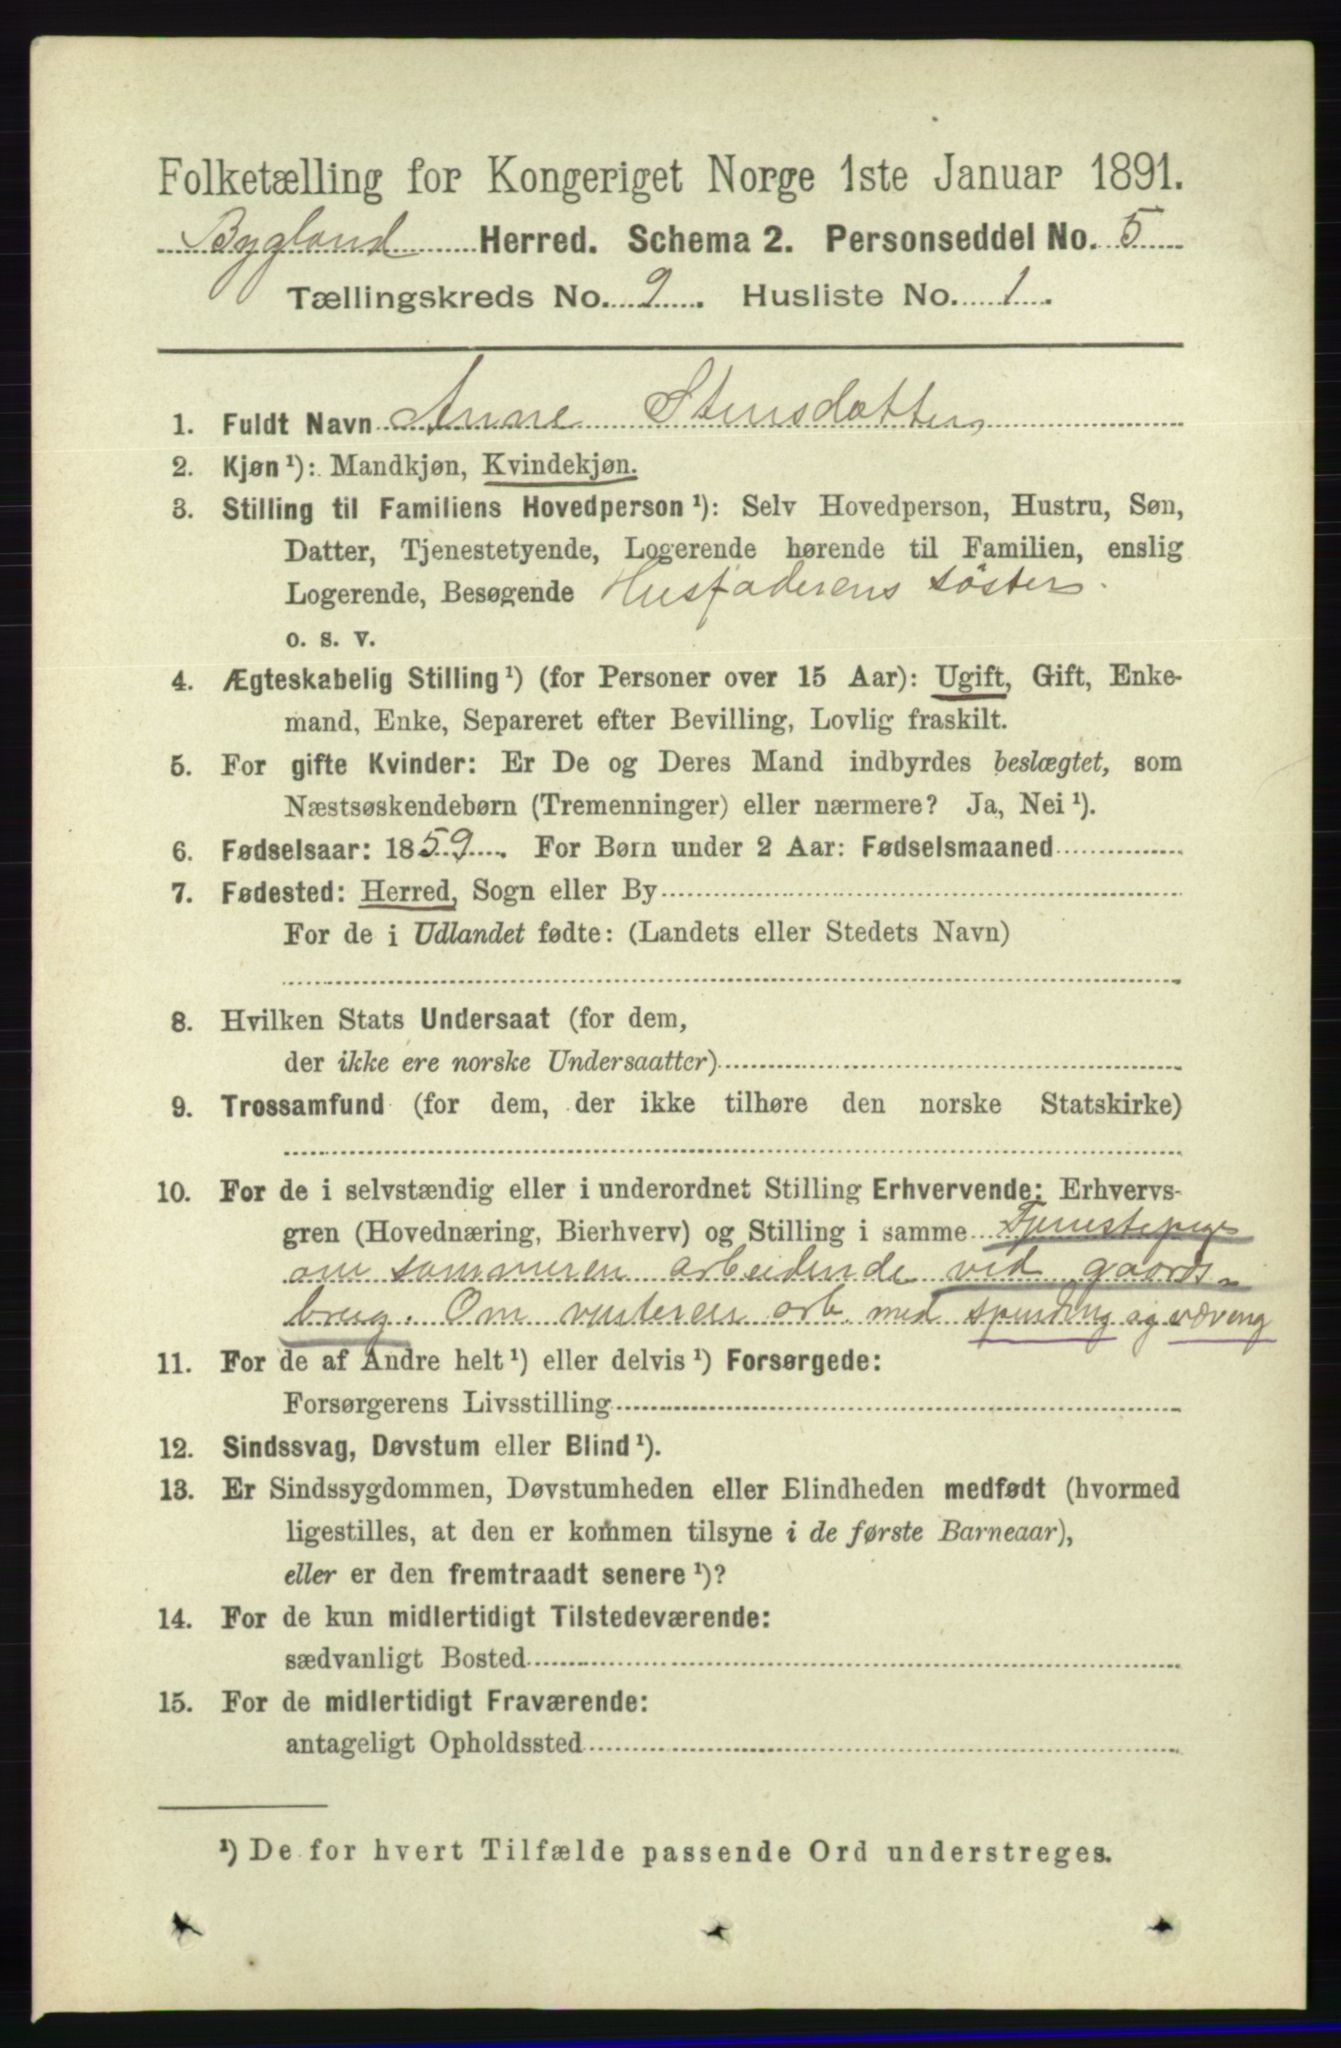 Folketælling for Kongeriget Norge 1ste Januar 1891.
Bygland Herred. Schema 2. Personseddel No. 5
Tællingskreds No. 9. Husliste No. 1.
1. Fuldt Navn Anne Stensdatter
2. Kjøn ¹): Mandkjøn, Kvindekjøn.
3. Stilling til Familiens Hovedperson ¹): Selv Hovedperson, Hustru, Søn,
Datter, Tjenestetyende, Logerende hørende til Familien, enslig
Logerende, Besøgende Husfaderens søster.
o. s. v.
4. Ægteskabelig Stilling ¹) (for Personer over 15 Aar): Ugift, Gift, Enke-
mand, Enke, Separeret efter Bevilling, Lovlig fraskilt.
5. For gifte Kvinder: Er De og Deres Mand indbyrdes beslægtet, som
Næstsøskendebørn (Tremenninger) eller nærmere? Ja, Nei ¹).
6. Fødselsaar: 1859. For Børn under 2 Aar: Fødselsmaaned
7. Fødested: Herred, Sogn eller By
For de i Udlandet fødte: (Landets eller Stedets Navn)
8. Hvilken Stats Undersaat (for dem,
der ikke ere norske Undersaatter)
9. Trossamfund (for dem, der ikke tilhøre den norske Statskirke)
10. For de i selvstændig eller i underordnet Stilling Erhvervende: Erhvervs-
gren (Hovednæring, Bierhverv) og Stilling i samme Tjenestepige
om sommeren arbeidende ved gaards-
brug. Om vinteren arb. med spinding og væveng
11. For de af Andre helt ¹) eller delvis ¹) Forsørgede:
Forsørgerens Livsstilling
12. Sindssvag, Døvstum eller Blind ¹).
13. Er Sindssygdommen, Døvstumheden eller Blindheden medfødt (hvormed
ligestilles, at den er kommen tilsyne i de første Barneaar),
eller er den fremtraadt senere ¹)?
14. For de kun midlertidigt Tilstedeværende:
sædvanligt Bosted
15. For de midlertidigt Fraværende:
antageligt Opholdssted
¹) De for hvert Tilfælde passende Ord understreges.